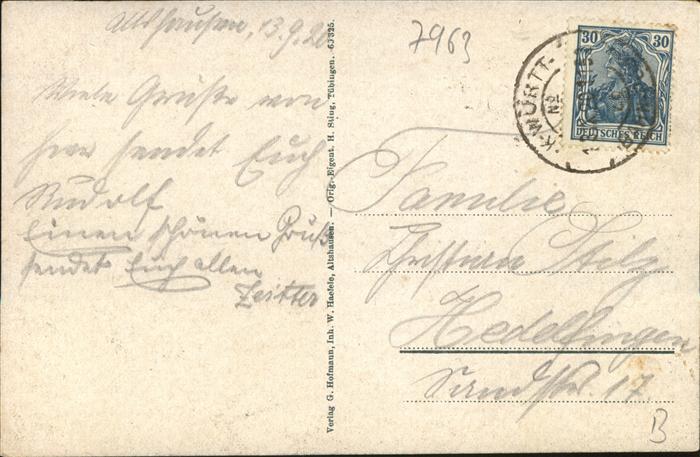 Altshausen, 13.9.20
Viele Grüße von
hier sendet Euch
Rudolf
Einen schönen Gruß
sendet Euch allen
Zeitter
Verlag G. Hofmann, Inh. W. Haefele, Altshausen. — Orig.-Eigent. H. Sting, Tübingen. 6J325.
7963
30 30
DEUTSCHES REICH
K. WÜRTT.
Familie
Stilz
Hedelfingen
Sandstr. 17
B